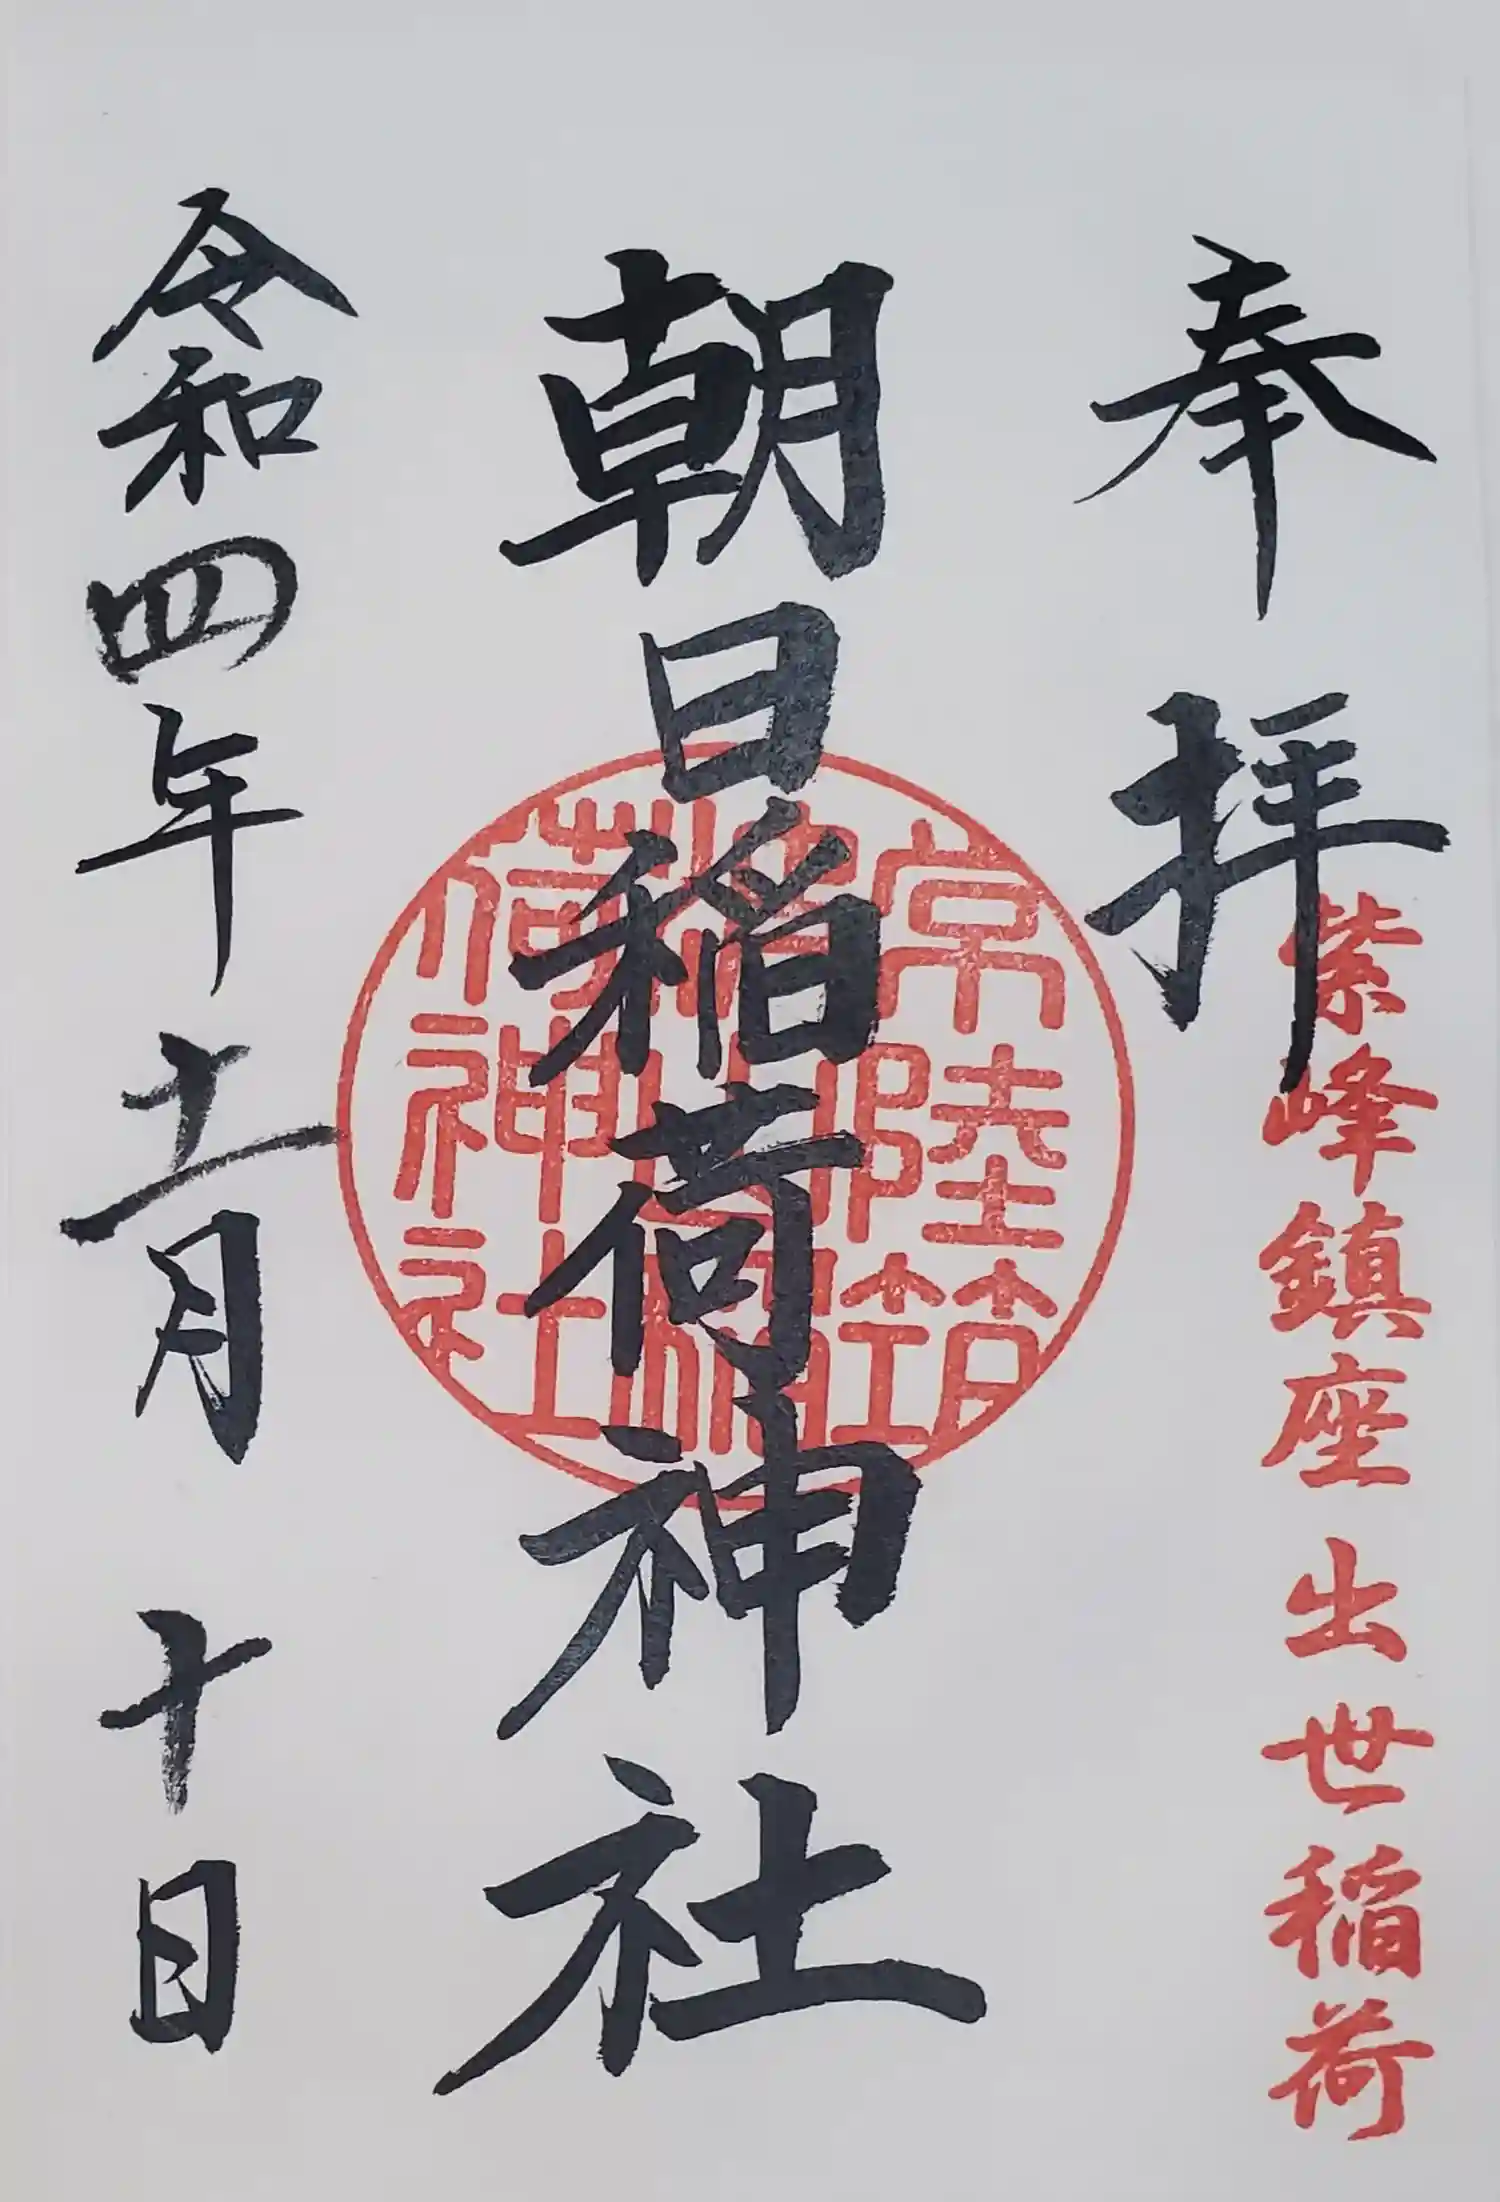 奉拝
紫峰鎮座出世稲荷
朝日稲荷神社
常陸筑
荷神社
令和四年十一月十日